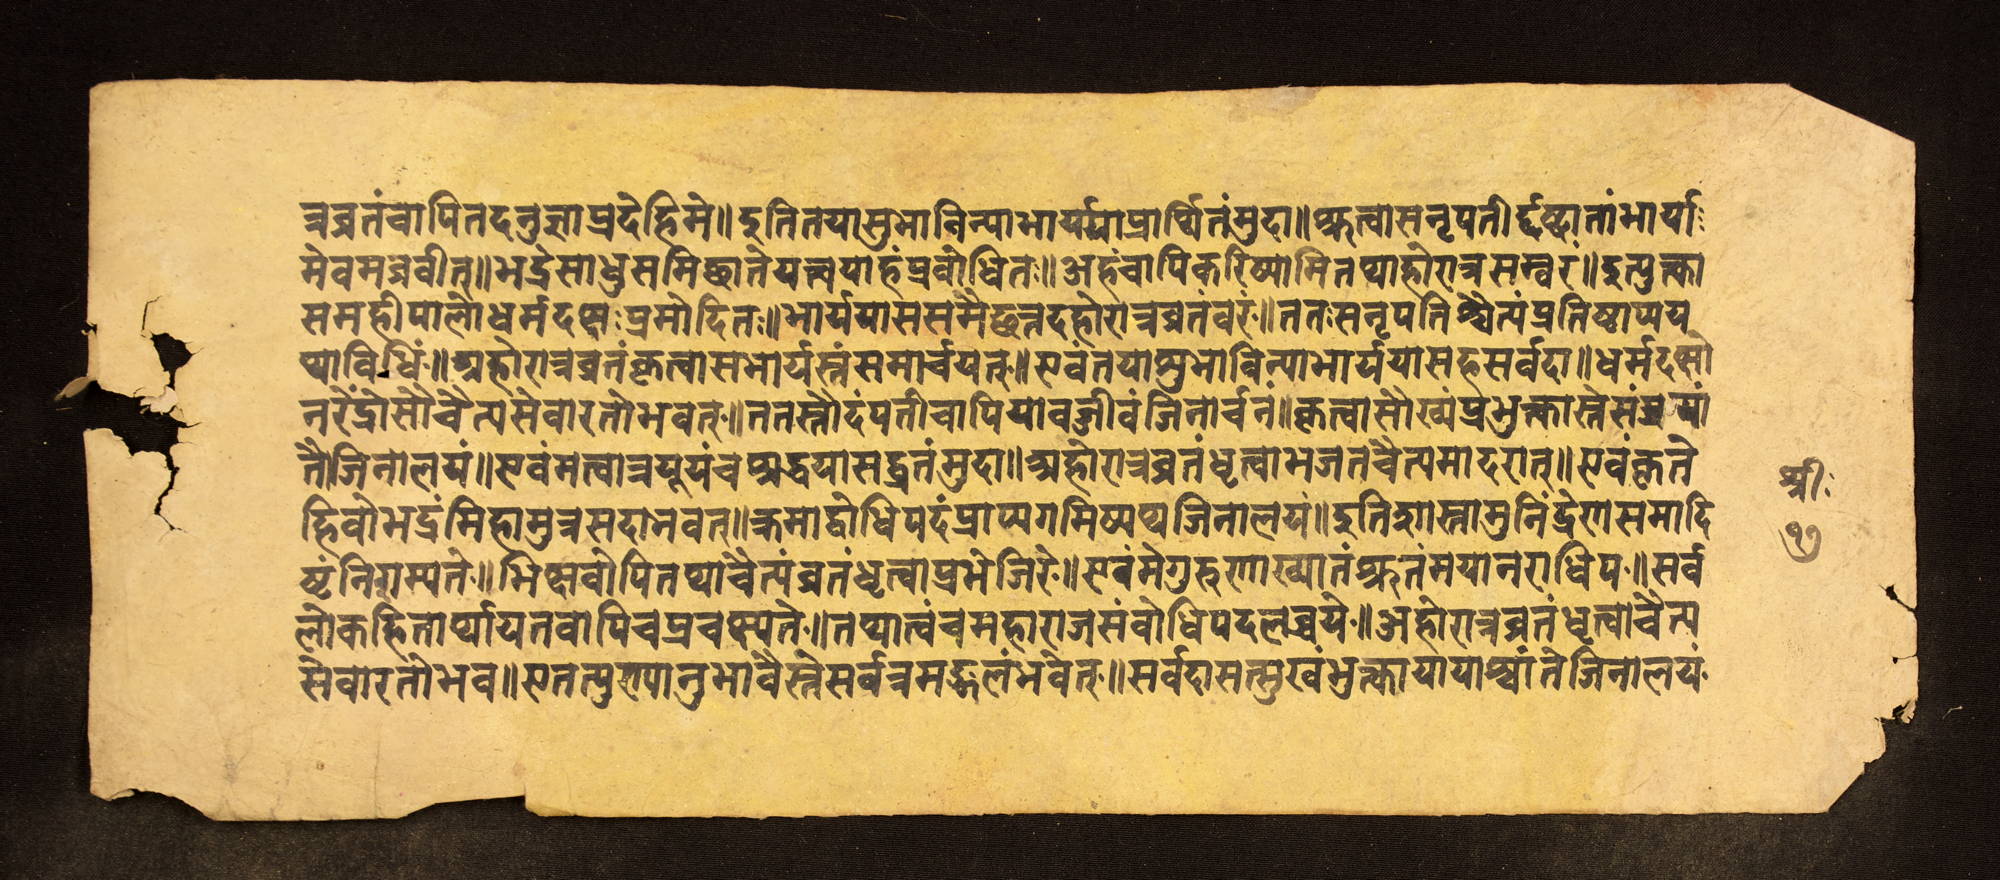 त्रव्रतंचापितदनुज्ञाप्रदेहिमे॥इतितयासुभानिन्याभार्यया प्रार्थितंमुदा॥श्रुत्वासनृपतीर्दृष्ट्वातांभार्याः
मेवमब्रवीत्॥भद्रेसाधुसमिछातेयत्त्वयाहंप्रवोधितः॥अहंचापिकरिष्यामितथाहोरात्रसम्वरं॥इत्युक्त्वा
समहीपालोधर्मदक्षःप्रमोदितः॥भार्ययाससमैछत्तदहोरात्रव्रतंवरं॥ततःसनृपतिश्चैत्यंप्रतिष्ठाप्यय
थाविधिं॥अहोरात्रव्रतंकृत्वासभार्यस्तंसमार्चयत्॥एवंतयासुभाविन्याभार्ययासहसर्वदा॥धर्मदक्षो
नरेंद्रोसौचैत्यसेवारतोभवत्॥ततस्तौदंपतीचापियावज्जीवंजिनार्चनं॥कृत्वासौख्यंप्रभुक्त्वास्तेसंप्रयां
तैजिनालयं॥एवंमत्वात्रयूयंचश्रद्धयासद्व्रतंमुदा॥अहोरात्रव्रतंधृत्वाभजतचैत्यमादरात्॥एवंकृते
हिवोभद्रंमिहामुत्रसदाभवत्॥क्रमाद्वोधिपदंप्राप्यगमिष्यथजिनालयं॥इतिशास्त्रामुनिंद्रेणसमादि
ष्टंनिशम्यते॥भिक्षवोपितथाचैत्यंव्रतंधृत्वाप्रभेजिरे॥एवंमेगुरुणाख्यातंश्रुतंमयानराधिप॥सर्व
लोकहितार्थायतवापिचप्रचक्ष्यते॥तथात्वंचमहाराजसंवोधिपदलब्धये॥अहोरात्रव्रतंधृत्वाचैत्य
सेवारतोभव॥एतत्पुण्यानुभावैस्तेसर्वत्रमङ्गलंभवेत्॥सर्वदासत्सुखंभुक्त्वायायाश्चांतेजिनालयं
श्रीः
१७